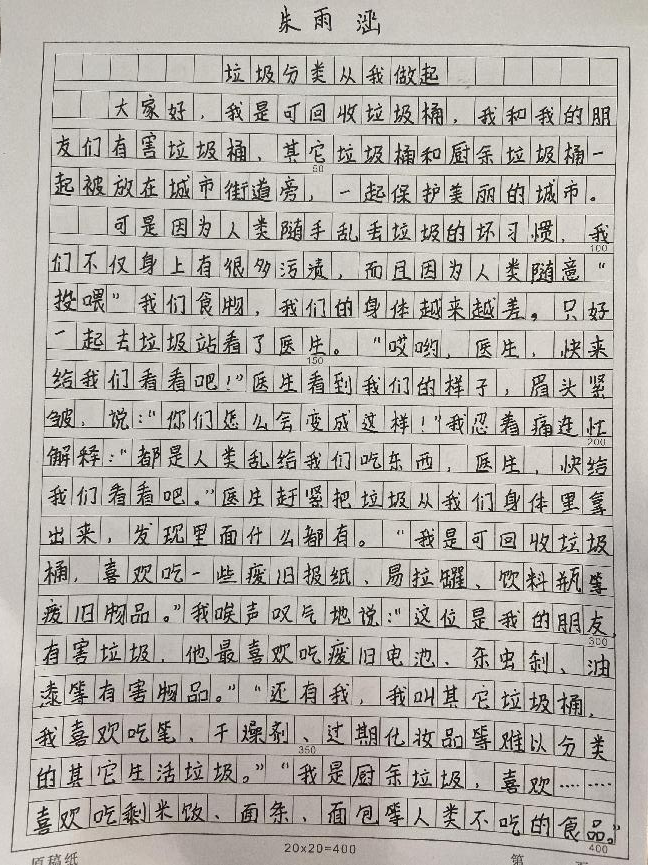 朱雨涵
垃圾分类从我做起
大家好，我是可回收垃圾桶，我和我的朋
友们有害垃圾桶、其它垃圾桶和厨余垃圾桶一
50
起被放在城市街道旁，一起保护美丽的城市。
可是因为人类随手乱丢垃圾的坏习惯，我
100
们不仅身上有很多污渍，而且因为人类随意“
投喂”我们食物，我们的身体越来越差，只好
一起去垃圾站看了医生。“哎哟，医生，快来
150
给我们看看吧！”医生看到我们的样子，眉头紧
皱，说：“你们怎么会变成这样！”我忍着痛连忙
200
解释：“都是人类乱给我们吃东西，医生，快给
我们看看吧。”医生赶紧把垃圾从我们身体里拿
出来，发现里面什么都有。“我是可回收垃圾
桶，喜欢吃一些废旧报纸、易拉罐、饮料瓶等
废旧物品。”我唉声叹气地说：“这位是我的朋友，
300
有害垃圾，他最喜欢吃废旧电池、杀虫剂、油
漆等有害物品。”“还有我，我叫其它垃圾桶，
我喜欢吃笔、干燥剂、过期化妆品等难以分类
350
的其它生活垃圾。”“我是厨余垃圾，喜欢……
喜欢吃剩米饭、面条、面包等人类不吃的食品。”
400
原稿纸
20×20=400
第